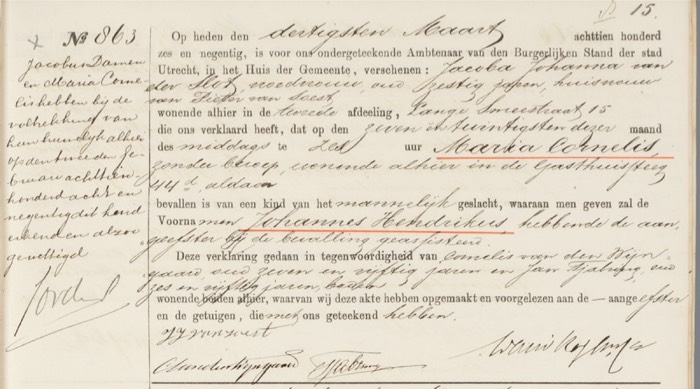 15.
Nº 863
Jacobus Damen
en Maria Corne-
lis hebben bij de
voltrekking van
hun huwelijk alhier
op den tweeden fe-
bruari achttien-
honderd acht en
negentig dit kind
erkend en alzoo
gewettigd
Op heden den dertigsten Maart achttien honderd
zes en negentig, is voor ons ondergeteekende Ambtenaar van den Burgerlijken Stand der stad
Utrecht, in het Huis der Gemeente, verschenen: Jacoba Johanna van
der Slot, vroedvrouw, oud zestig jaren, huisvrouw
van Pieter van Soest
wonende alhier in de afdeeling, Lange Smeestraat 15
die ons verklaard heeft, dat op den zeven en twintigsten dezer maand
des middags te uur Maria Cornelis,
zonder beroep, wonende alhier in de Gasthuissteeg
44d, aldaar
bevallen is van een kind van het mannelijk geslacht, waaraan men geven zal de
Voornamen Johannes Hendrikus hebbende de aan-
geefster bij de bevalling geassisteerd.
Deze verklaring gedaan in tegenwoordigheid van Cornelis van den Wijn-
gaard, oud zeven en vijftig jaren en Jan oud
zes en vijftig jaren, beiden
wonende beiden alhier, waarvan wij deze akte hebben opgemaakt en voorgelezen aan de — aangeefster
en de getuigen, die met ons geteekend hebben.